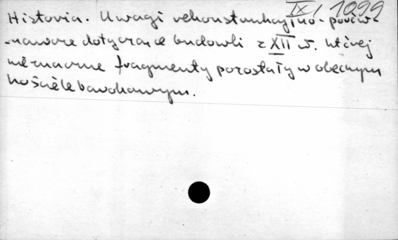 IX/1099
Historia. Uwagi rekonstrukcyjno-porów-
nawcze dotyczące budowli z XII w. której
nieznaczne fragmenty pozostały w obecnym
kościele barokowym.